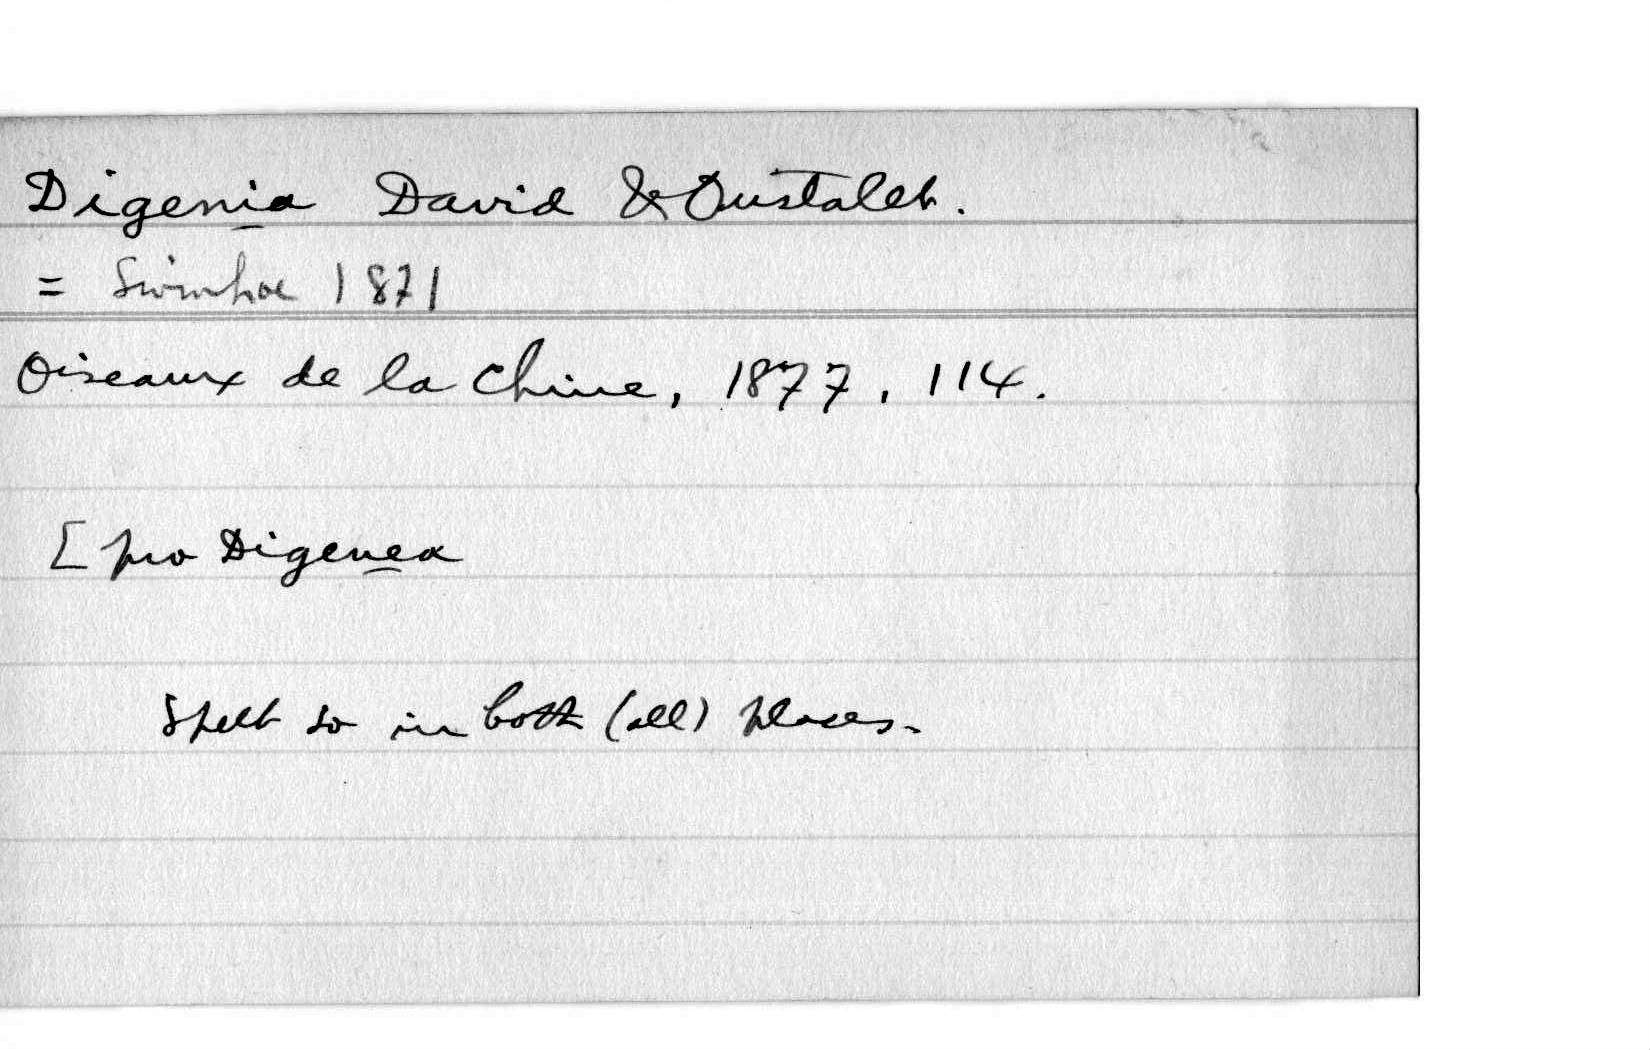 Digenia David & Oustalet.
= Swinhoe 1871
Oiseaux de la Chine, 1877, 114.
[ pro Digenea
Spelt so in both (all) places.